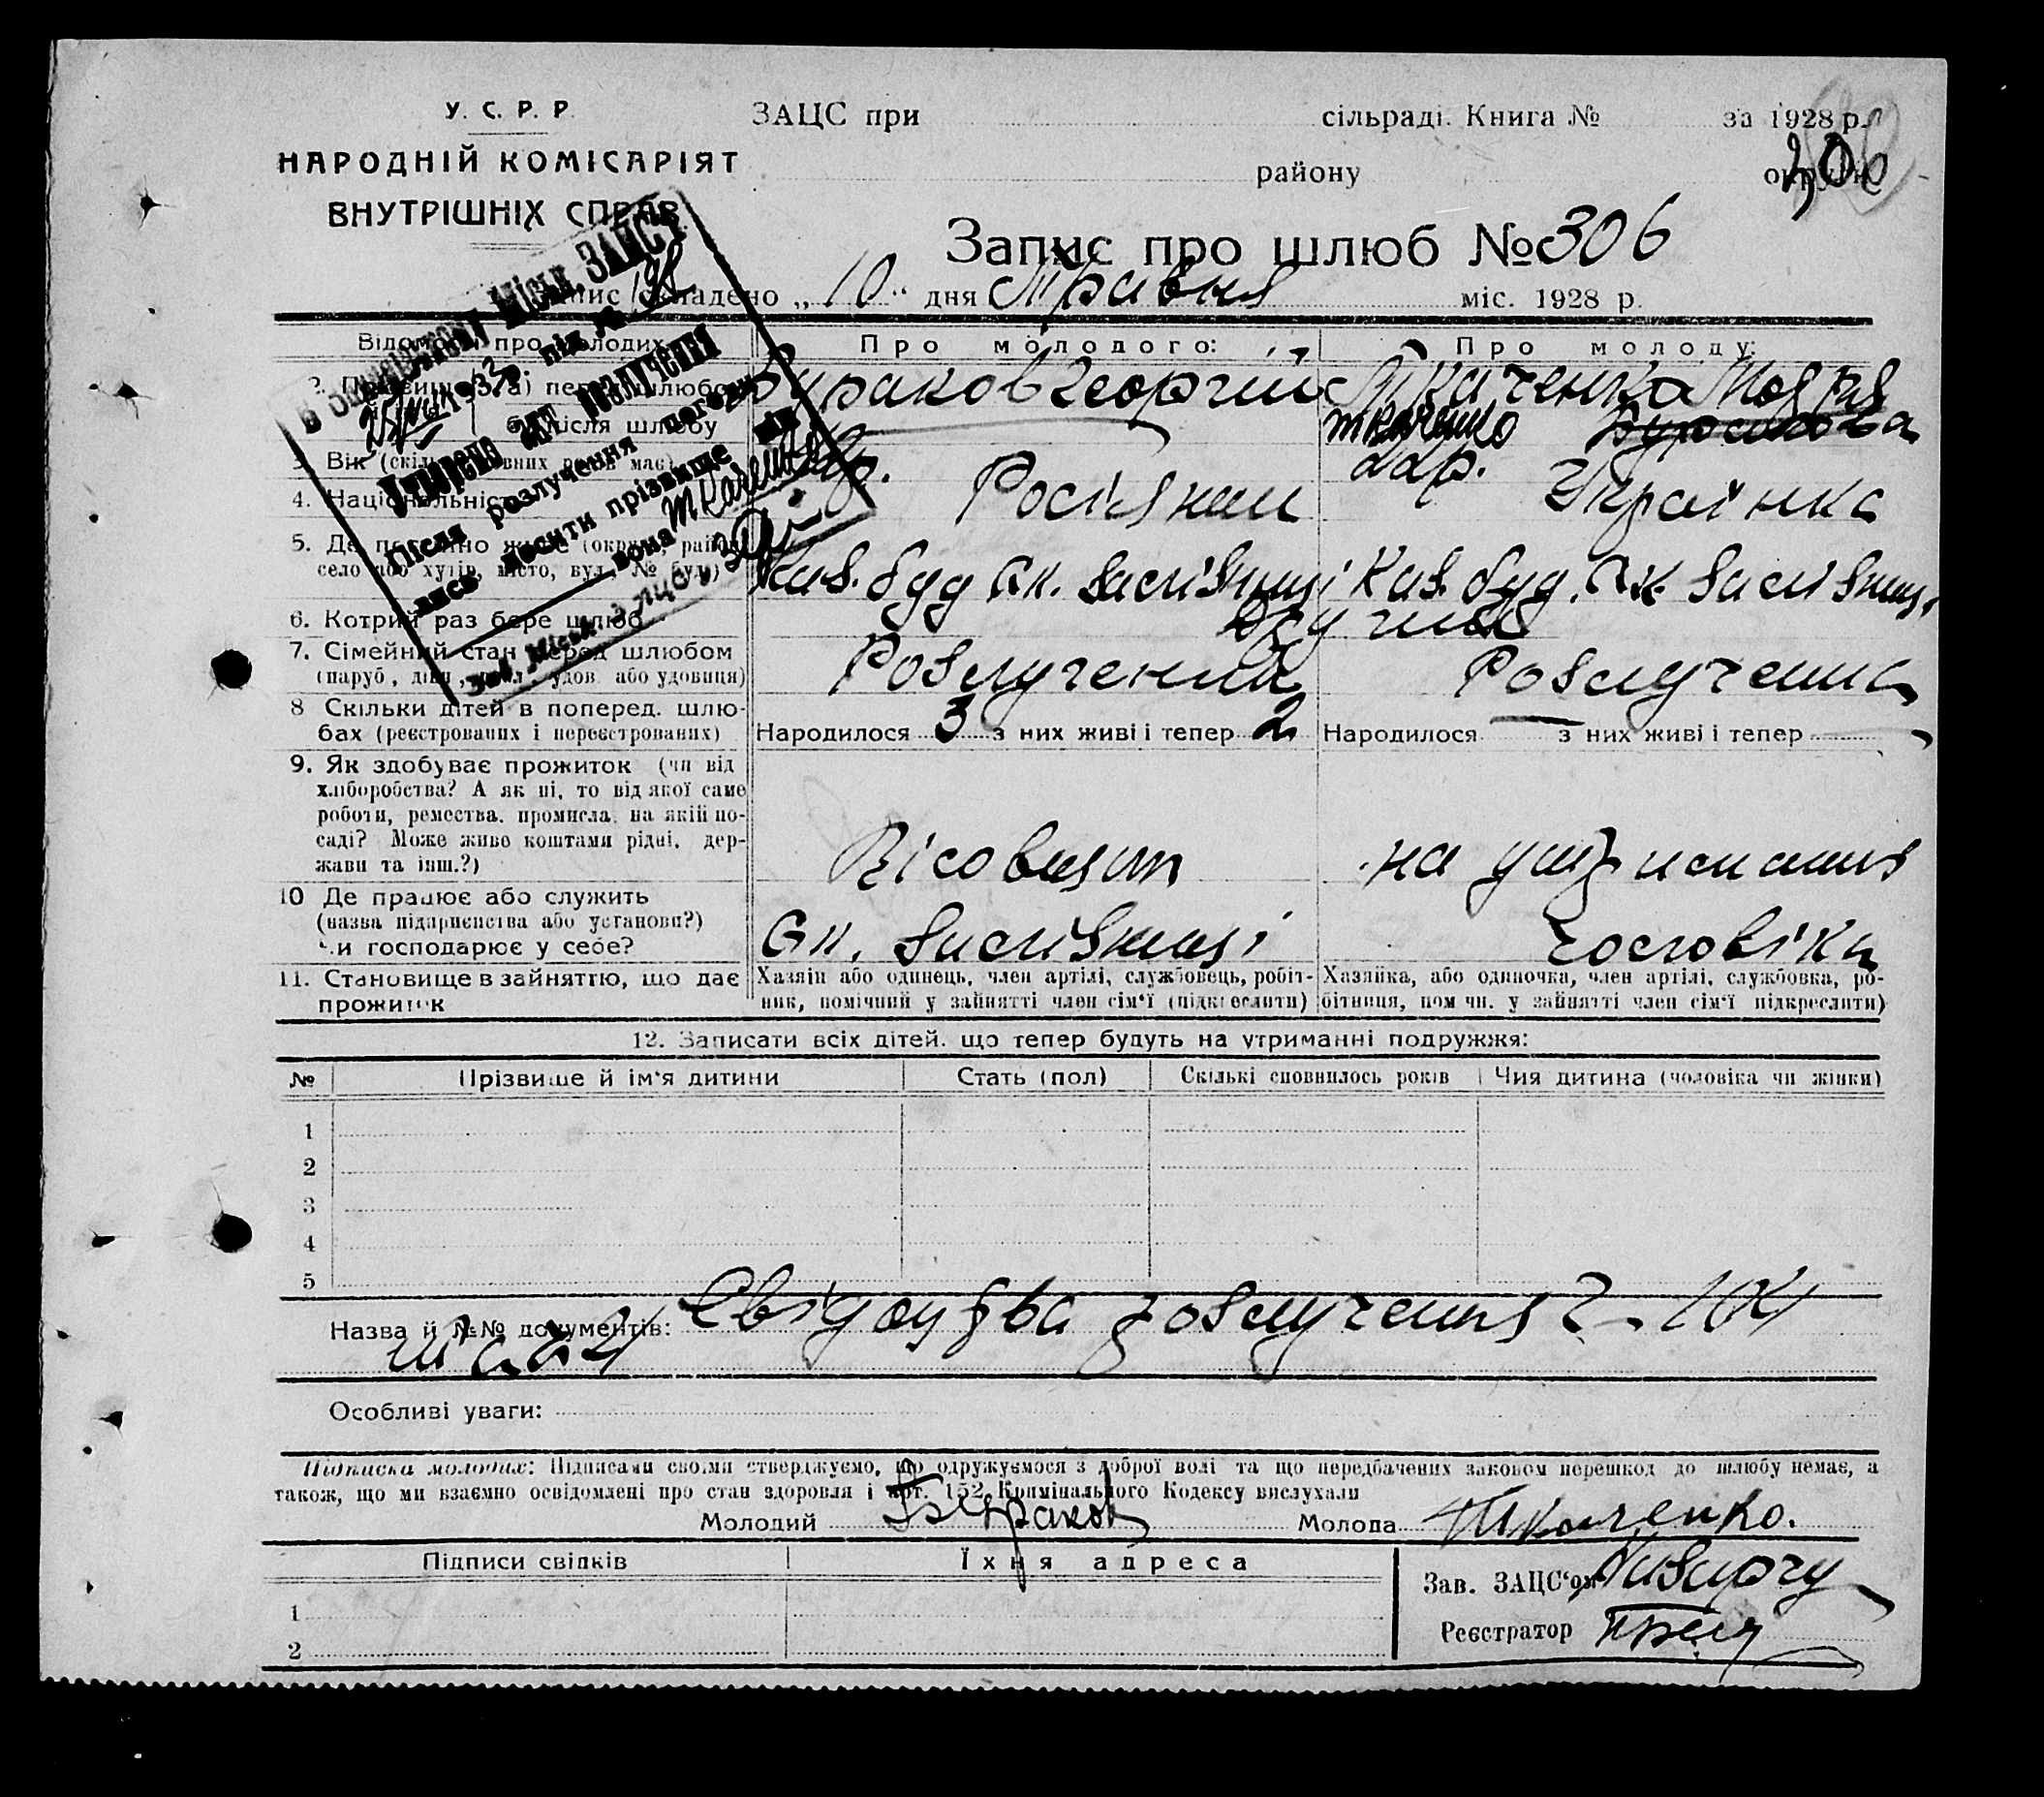 У. С. Р. Р.
НАРОДНІЙ КОМІСАРІЯТ
ВНУТРІШНІХ СПРАВ
ЗАЦС при сільраді. Книга № за 1928 р.
району округи
306
Запис про шлюб № 306
Запис складено „ 10 “ дня Травня міс. 1928 р.
В Міськ. ЗАЦСі
193 р. під №
Утворено акт розлучення
Після розлучення погоди-
лись носити прізвище він
вона Ткаченко
Зав. Міськ. ЗАЦС
Відомості про молодих Про молодого: Про молоду:
2. Прізвище а) перед шлюбом Бураков Георгій Ткаченко Марія
б) після шлюбу Ткаченко Буракова
3. Вік (скільки повних років має) р. р.
4. Національність Росіянин Українка
5. Де постійно живе (округа, район, село або хутір, місто, вул., № буд.) Каз. буд ст. Каз. буд. ст.
6. Котрий раз бере шлюб Другий
7. Сімейний стан перед шлюбом Розлучений Розлучена
(паруб., дівч., розл., удов. або удовиця)
8 Скільки дітей в поперед. шлю-
бах (реєстрованих і нереєстрованих) Народилося 3 з них живі і тепер 2 Народилося — з них живі і тепер
9. Як здобуває прожиток (чи від
хліборобства? А як ні, то від якої саме
роботи, ремества, промисла, на якій по-
саді? Може живе коштами рідні, дер-
жави та інш.?) на утриманні
10 Де працює або служить
(назва підприємства або установи?)
чи господарює у себе? Ст. чоловіка
11. Становище в зайняттю, що дає
прожиток
Хазяїн або одинець, член артілі, службовець, робіт-
ник, помічний у зайнятті член сім'ї (підкреслити)
Хазяйка, або одиночка, член артілі, службовка, ро-
бітниця, пом чн. у зайнятті член сім'ї підкреслити)
12. Записати всіх дітей, що тепер будуть на утриманні подружжя:
№ Прізвище й ім'я дитини Стать (пол) Скількі сповнилось років Чия дитина (чоловіка чи жінки)
1
2
3
4
5
Назва й №№ документів: Свідоцтва розлучення
Особливі уваги:
Підписка молодих: Підписами своїми стверджуємо, що одружуємося з доброї волі та що передбачених законом перешкод до шлюбу немає, а
також, що ми взаємно освідомлені про стан здоровля і арт. 152 Кримінального Кодексу вислухали
Молодий Бураков Молода Ткаченко.
Підписи свідків Їхня адреса
Зав. ЗАЦС'ом
Реєстратор
1
2